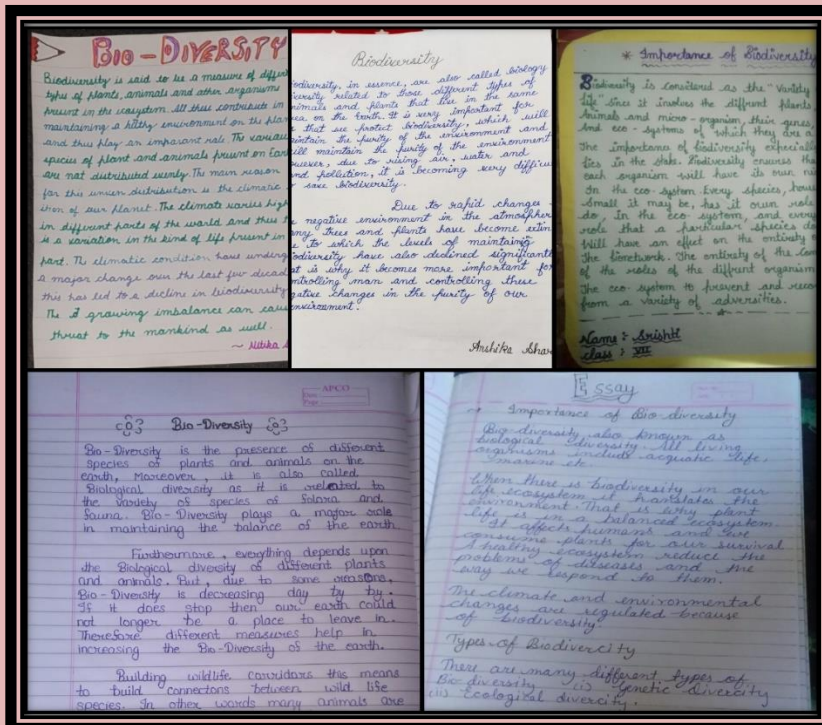 BIO-DIVERSITY
Biodiversity is said to be a measure of differ
types of plants, animals and other organisms
present in the ecosystem. All thus contribute in
maintaining a hilthy environment on the plan
and thus play an imparant role. The various
species of plant and animals present on Ear
are nat distributed evenly. The main reason
for this unven distribution is the climatic
ition of our planet. The climate varies high
in different parts of the world and thus t
is a variation in the kind of life present in
part. The climatic condition have underg
a major change over the last few decad
this has led to a decline in biodiversity
The growing imbalance can cau
thrust to the mankind as well.
~ Nitika
Biodiversity
odiversity, in essence, are also called biology
iversity related to those different types of
nimals and plants that live in the same
ea on the Earth. It is very important for
that we protect biodiversity, which will
aintain the purity of the environment and
ill maintain the purity of the environment
owever, due to rising air, water and
nd pollution, it is becoming very difficu
save biodiversity.
Due to rapid changes
e negative environment in the atmospher
any trees and plants have become extin
e to which the levels of maintaining
odiversity have also declined significantl
at is why it becomes more important for
ntrolling man and controlling these
gative changes in the purity of our
environment.
Anshika Shar
* Importance of Biodiversity
Biodiversity is considered as the "Variety
life since it involves the diffrent plants
Animals and micro-organism, their genes
And eco-systems of which they are a
The importance of biodiversity especial
ties in the state. Biodiversity ensures tha
each organism will have its own ni
In the eco-system. Every species, how
Small it may be, has it own role
do, In the eco-system, and every
role that a particular species do
Will have an effect on the entirety o
The bionetwork. The entirety of the
of the roles of the diffrent organism
The eco system to prevent and reco
from a variety of adversities.
Name :- Srishti
class : VII
APCO
Date
Page
Bio-Diversity
Bio-Diversity is the presence of different
species of plants and animals on the
earth, Moreover, it is also called
Biological diversity as it is related to
the variety of species of folora and
fauna. Bio-Diversity plays a major role
in maintaining the balance of the earth
Furthermore, everything depends upon
the Biological diversity of different plants
and animals. But, due to some reasons,
Bio-Diversity is decreasing day by by.
If it does stop then our earth could
not longer be a place to leave in.
Therefore different measures help in
increasing the Bio-Diversity of the earth.
Building wildlife corridors this means
to build connectons between wild life
species. In other words many animals are
Essay
→ Importance of Bio-diversity
Bio-diversity also known as
biological diversity. All living
organisms include acquatic life,
marine etc.
When there is biodiversity in our
life ecosystem it translates the
environment. That is why plant
life is in a balanced ecosystem.
It affects humans and we
consume plants for our survival
A healthy ecosystem reduce the
problems of diseases and the
way we respond to them.
The climate and environmental
changes are regulated because
of biodiversity.
Types of Biodivercity
There are many different types of
Bio diversity (i) Genetic divercity
(ii) Ecological divercity.